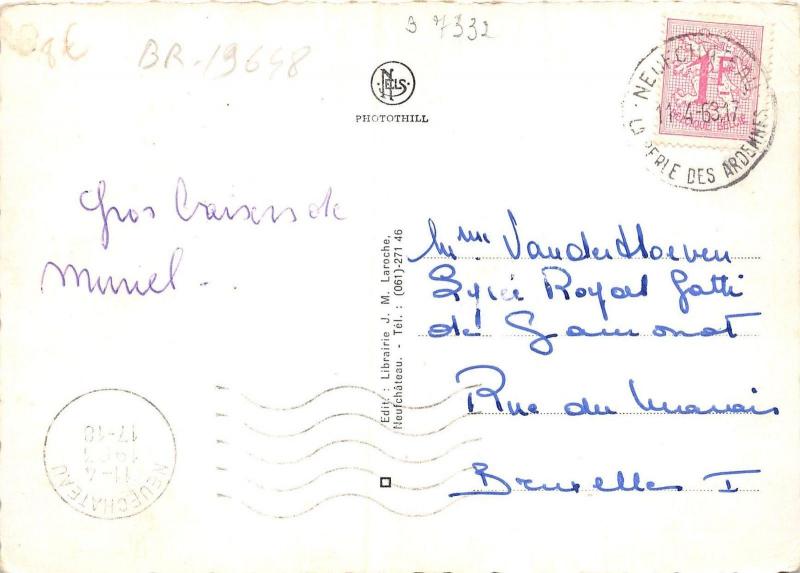 8€
BR-19648
B 7332
NELS
PHOTOTHILL
1F
BELGIQUE-BELGIE
NEUFCHATEAU
11-4-63.17
LA PERLE DES ARDENNES
Gros baisers de
Muriel.
Edit. : Librairie J. M. Laroche,
Neufchâteau. - Tél. : (061)-271 46
Mme VanderHoeven
Lycée Royal Gatti
de Gamonot
Rue du Marais
Bruxelles I
NEUFCHATEAU
11-4
1963
17-18